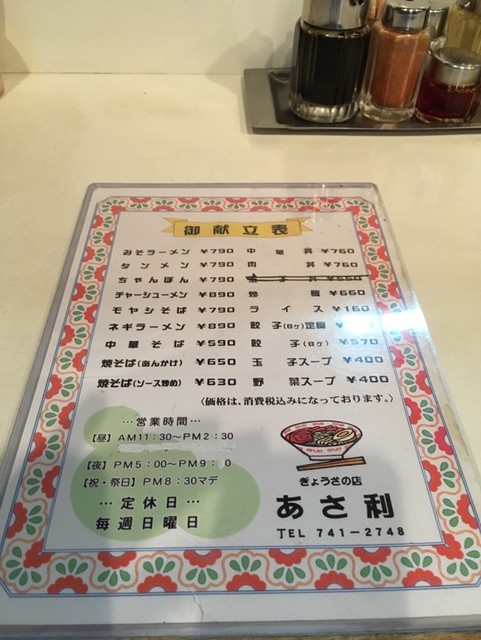 御献立表
みそラーメン ￥790
タンメン ￥790
ちゃんぽん ￥790
チャーシューメン ￥890
モヤシそば ￥790
ネギラーメン ￥890
中華そば ￥590
焼そば(あんかけ) ￥650
焼そば(ソース炒め) ￥630
中華丼 ￥760
肉丼 ￥760
子丼 ￥660
炒飯 ￥660
ライス ￥160
餃子(ロケ)定食 ￥
餃子(ロケ) ￥570
玉子スープ ￥400
野菜スープ ￥400
〈価格は、消費税込みになっております。〉
…営業時間…
【昼】AM11:30〜PM2:30
【夜】PM5:00〜PM9: 0
【祝・祭日】PM8:30マデ
…定休日…
毎週日曜日
ぎょうざの店
あさ利
TEL 741-2748